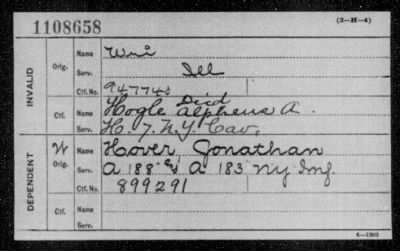 (3—H—4)
1108658
INVALID
Orig.
Name Wm
Serv. Ill
Ctf. No. 947740
Died
Ctf.
Name Hogle Alpheus A.
Serv. H. 7. N.Y. Cav.
DEPENDENT
W
Orig.
Name Hover, Jonathan
Serv. A 188 & A 183 NY Inf.
Ctf. No. 899291
Ctf.
Name
Serv.